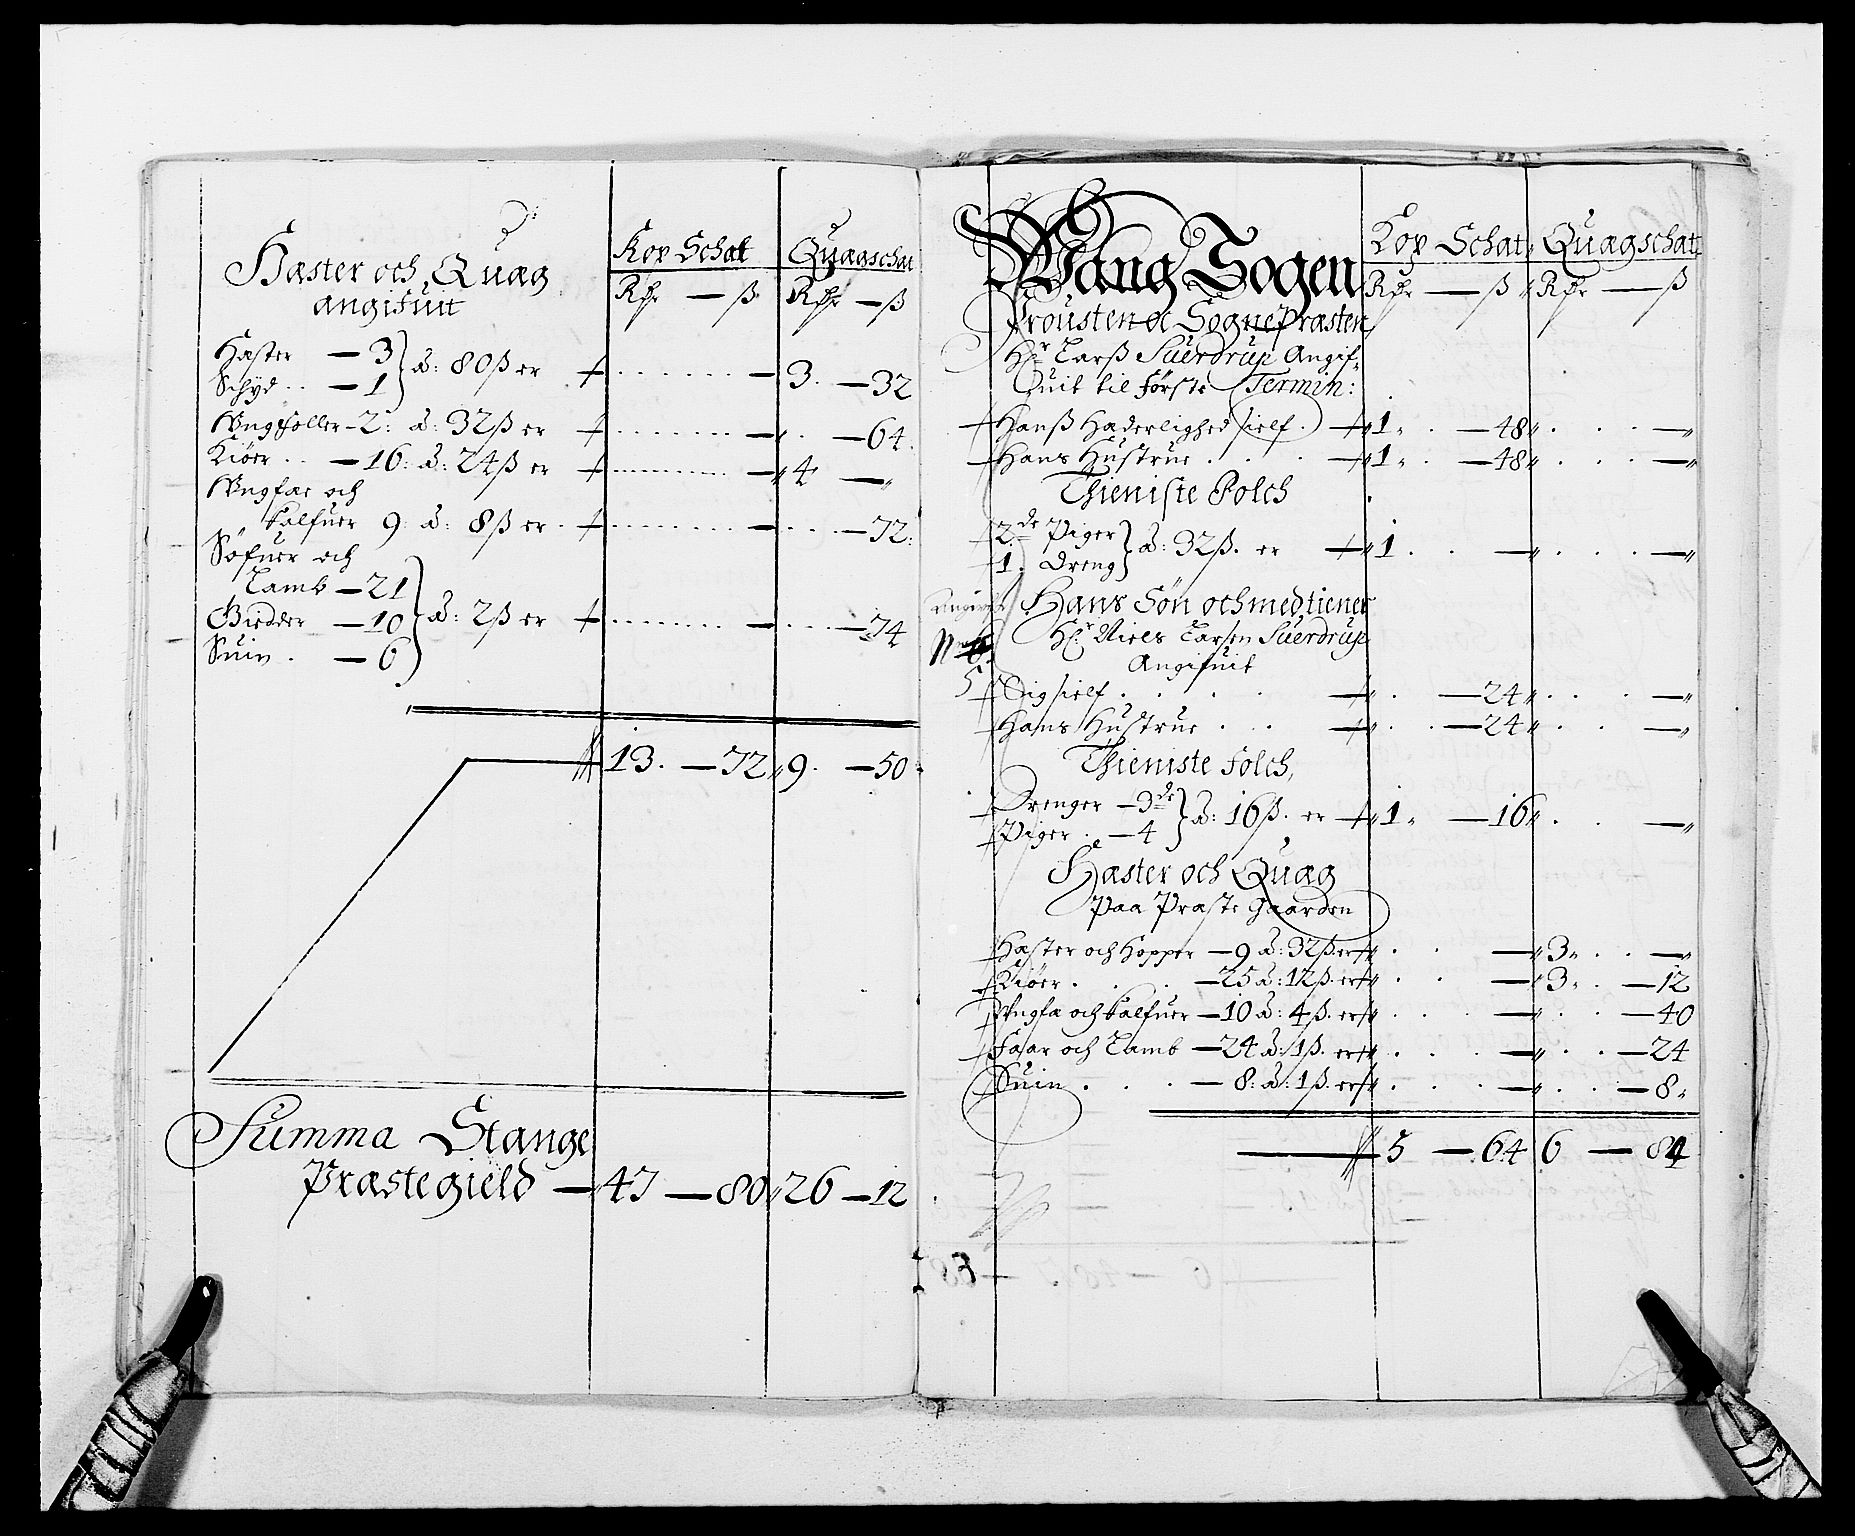 Hæster och Quæg
angifuit
Kop Schat
Quægschat
Rdr — ß
Rdr — ß
Hæster — 3
Schyd .. — 1
à: 80 ß er
3. — 32
Vngfoller – 2: à: 32 ß er
" . — 64.
Kiøer .. — 16: à: 24 ß er
" 4 — "
Vngfæ och
Kalfuer 9: à: 8 ß er
— 72:
Søfuer och
Lamb — 21
Giedder — 10
Suin . — 6
à: 2 ß er
— 74
13. — 72 " 9. — 50
Summa Stange
Præstegield — 47 — 80 " 26 — 12
Wang Sogen
Kop Schat
Quægschat
Rdr — ß " Rdr — ß
Prousten oc Sognepræsten
Hr Larß Suerdrup Angif-
uit til første Termin:
Hanß Hæderlighed sielf . " 1 " . — 48 " . . . — "
Hans Hustrue . . . " 1 " . — 48 " . . . — "
Thieniste Folch
2de Piger
1. Dreng
à: 32 ß. er " 1 . . — " . . . — "
Hans Søn och medtiener
Hr Niels Larsen Suerdrup
Angifuit
No
5
Sig sielf . . . . " . — 24 " . . . — "
Hans Hustrue . . . " . . — 24 " . . . — "
Thieniste folch,
Drenger — 3de
Piger . — 4
à: 16 ß. er " 1 " — 16 " . . — "
Hæster och Quæg
paa Præste Gaarden
Hæster och Hopper — 9 à: 32 ß. er " . . — " 3 " . . — "
Kiøer . . . — 25 à: 12 ß. er " . . — " 3 " . — 12
Vngfæ och Kalfuer — 10 à: 4 ß. er " . . . — " . . — 40
Faar och Lamb — 24 à: 1 ß. er " . . . — " . . — 24
Suin . . . — 8: à: 1 ß. er " . . . — " . . — 8 "
5 — 64 6 — 84